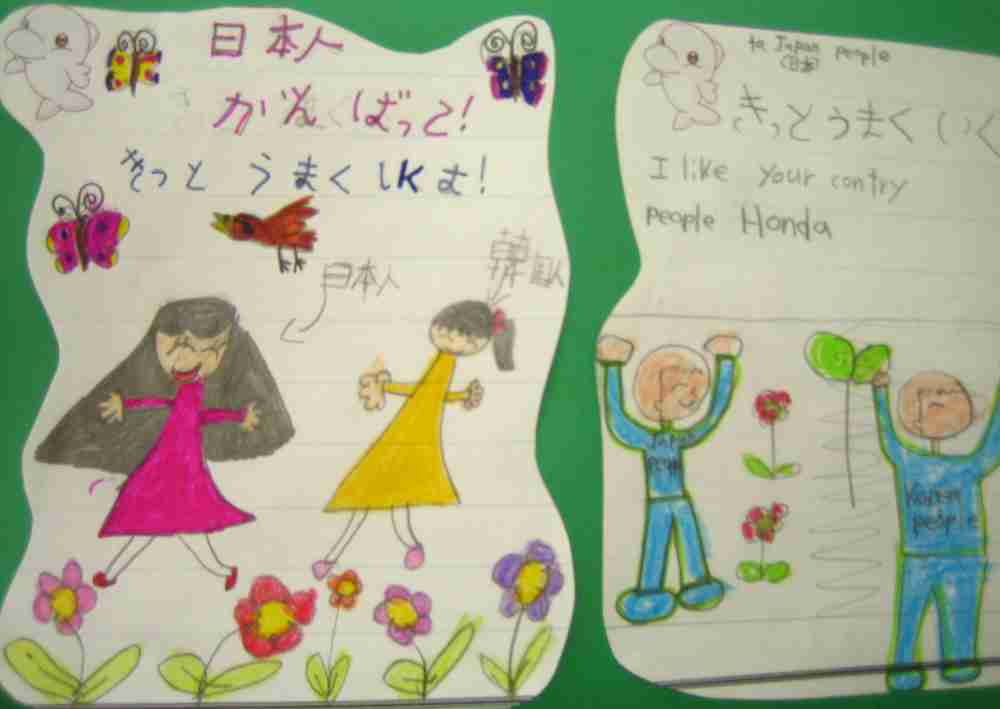 日本人
がんばって!
きっと うまく いくよ!
日本人
韓国人
to Japan people
(日本)
きっとうまくいく
I like your contry
people Honda
Japan
people
Korean
people